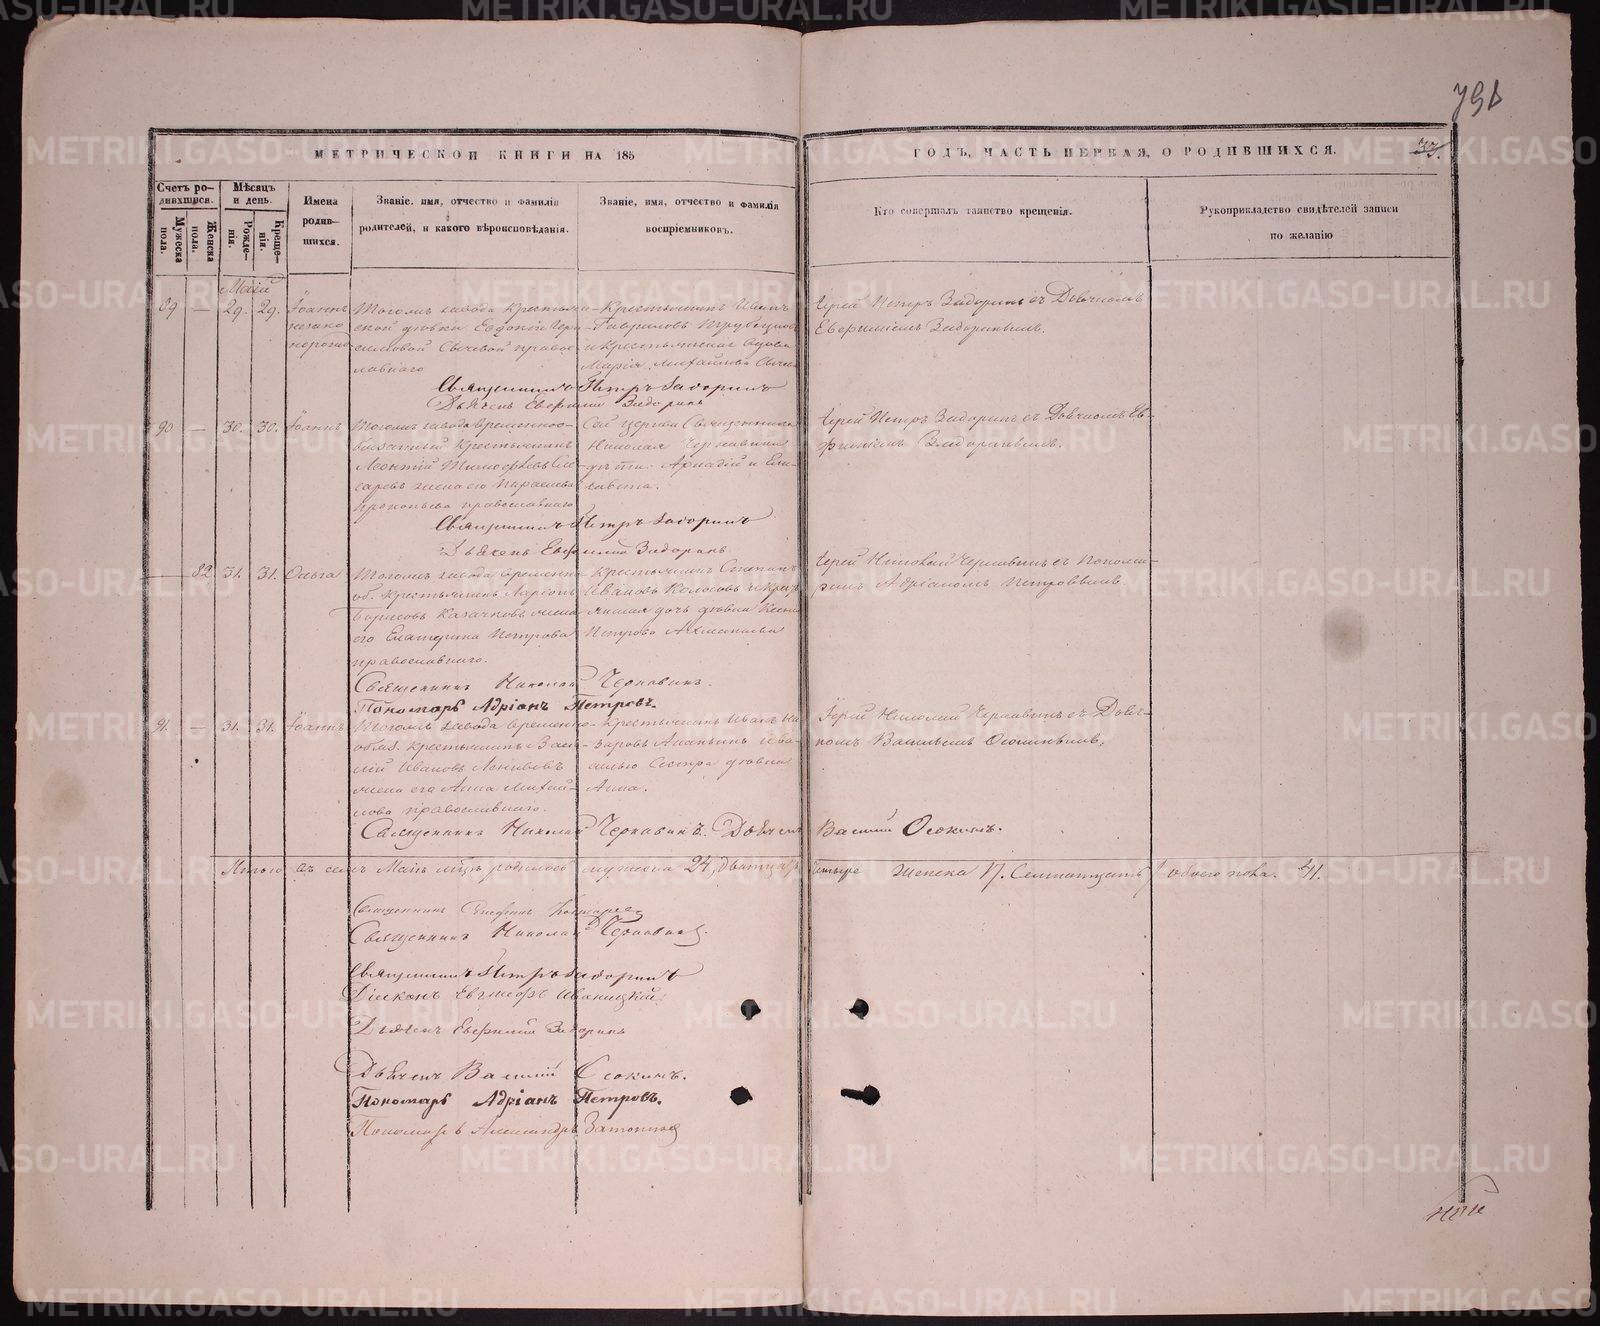 791
МЕТРИЧЕСКОЙ КНИГИ НА 185
ГОДЪ, ЧАСТЬ ПЕРВАЯ, О РОДИВШИХСЯ.
33.
Счетъ ро-
дившихся.
Мужеска пола.
Женска пола.
Мѣсяцъ
и день.
Рожде-
нія.
Креще-
нія.
Имена
родив-
шихся.
Званіе, имя, отчество и фамилія
родителей, и какого вѣроисповѣданія.
Званіе, имя, отчество и фамилія
воспріемниковъ.
Кто совершалъ таинство крещенія.
Рукоприкладство свидѣтелей записи
по желанію
Маій
89 — 29. 29. Іоаннъ
незако
Того жъ завода Крестьян
ской дѣвки Евдокіи
православнаго
Крестьянинъ Иванъ
Гавриловъ
и крестьянская вдова
Марія Михайлова
Іерей Петръ Задоринъ съ Дьячкомъ
Евфиміемъ Задоринымъ.
Священникъ Петръ Задоринъ
Дьячекъ Евфимій Задоринъ
90 — 30. 30. Іоаннъ
Того жъ завода временно-
обязанный Крестьянинъ
Леонтій Тимофѣевъ Сле-
саревъ жена его Параскева
Прокопьева православнаго
Сей церкви Священника
Николая Чернавина
дѣти: Аркадій и Ели-
савета.
Іерей Петръ Задоринъ съ Дьячкомъ Ев-
фиміемъ Задоринымъ.
Священникъ Петръ Задоринъ
Дьячекъ Евфимій Задоринъ
— 82. 31. 31. Ольга
Того жъ завода временно
об. Крестьянинъ Ларіонъ
Борисовъ Казачковъ жена
его Екатерина Петрова
православнаго.
Крестьянинъ Степанъ
Ивановъ Колосовъ и Крес
дочь дѣвка Ксенія
Петрова
Іерей Николай Чернавинъ съ Понома-
ремъ Адріаномъ Петровымъ.
Священникъ Николай Чернавинъ.
Пономарь Адріанъ Петровъ.
91. — 31. 31. Іоаннъ
Того жъ завода временно
обяз. Крестьянинъ Васи-
лій Ивановъ
жена его Анна Михай-
лова православнаго.
Крестьянинъ Иванъ На
заровъ Ананьинъ
Сестра дѣвка
Анна.
Іерей Николай Чернавинъ съ Дьяч-
комъ Василіемъ Осокинымъ.
Священникъ Николай Чернавинъ. Дьячекъ Василій Осокинъ.
Итого въ семъ Маѣ мѣс. родилось мужеска 24, двадцать четыре Женска 17. Семнатцать обоего пола. 41.
Священникъ
Священникъ Николай Чернавин.
Священникъ Петръ Задоринъ
Діаконъ Иваницкій
Дьячекъ Евфимій Задоринъ
Дьячекъ Василій Осокинъ.
Пономарь Адріанъ Петровъ.
Пономарь Александръ